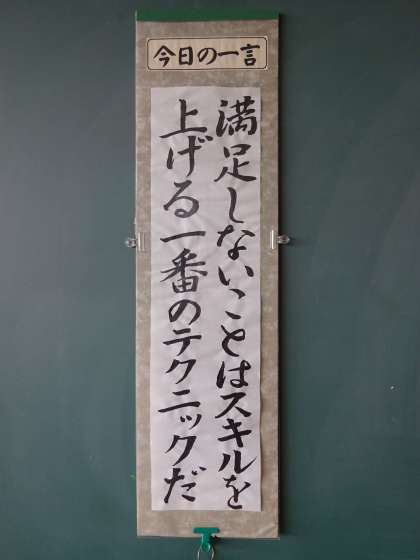 今日の一言
満足しないことはスキルを
上げる一番のテクニックだ